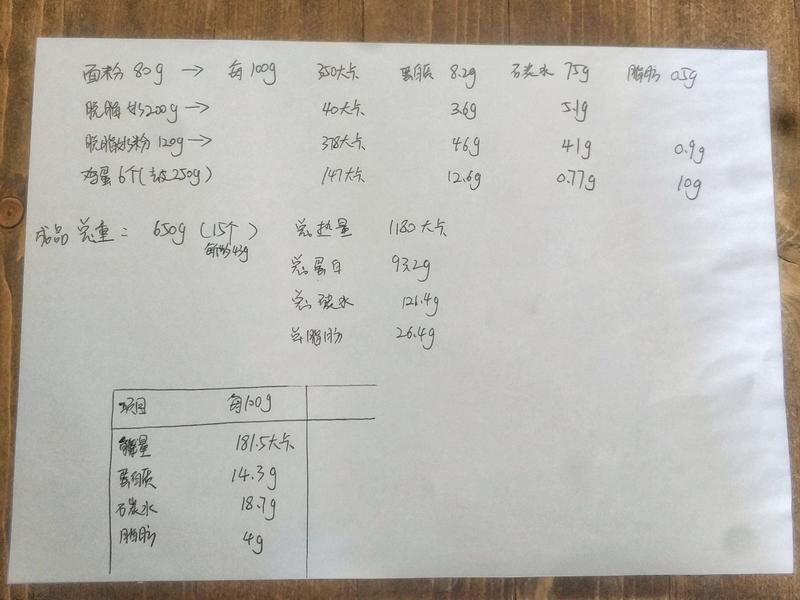 面粉 80g → 每100g 350大卡 蛋白质 8.2g 碳水 75g 脂肪 0.5g
脱脂奶200g → 40大卡 3.6g 5.1g
脱脂奶粉 120g → 378大卡 46g 41g 0.9g
鸡蛋6个(去皮250g) 147大卡 12.6g 0.77g 10g
成品总重: 650g (15个) 总热量 1180大卡
每个约43g
总蛋白 93.2g
总碳水 126.4g
总脂肪 26.4g
项目 每100g
能量 181.5大卡
蛋白质 14.3g
碳水 18.7g
脂肪 4g